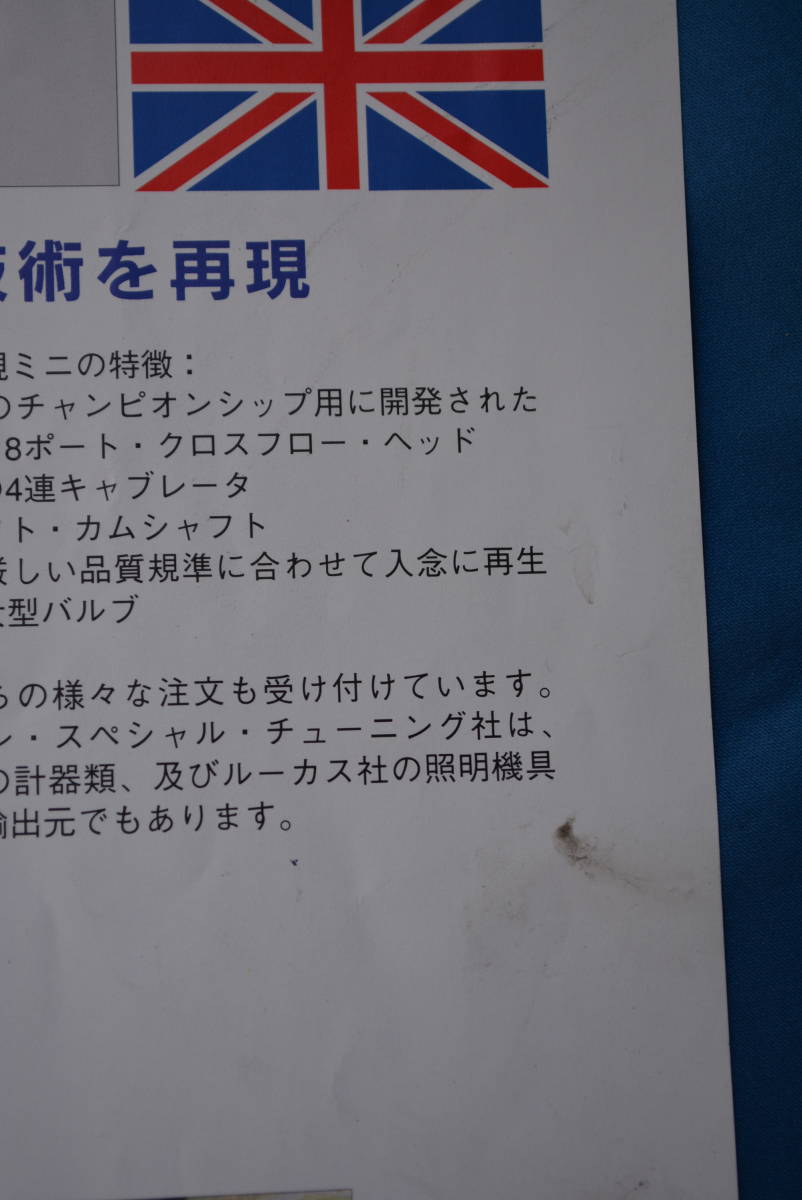 技術を再現
現ミニの特徴：
のチャンピオンシップ用に開発された
8ポート・クロスフロー・ヘッド
の4連キャブレータ
ト・カムシャフト
厳しい品質規準に合わせて入念に再生
大型バルブ
らの様々な注文も受け付けています。
ル・スペシャル・チューニング社は、
の計器類、及びルーカス社の照明機具
輸出元でもあります。